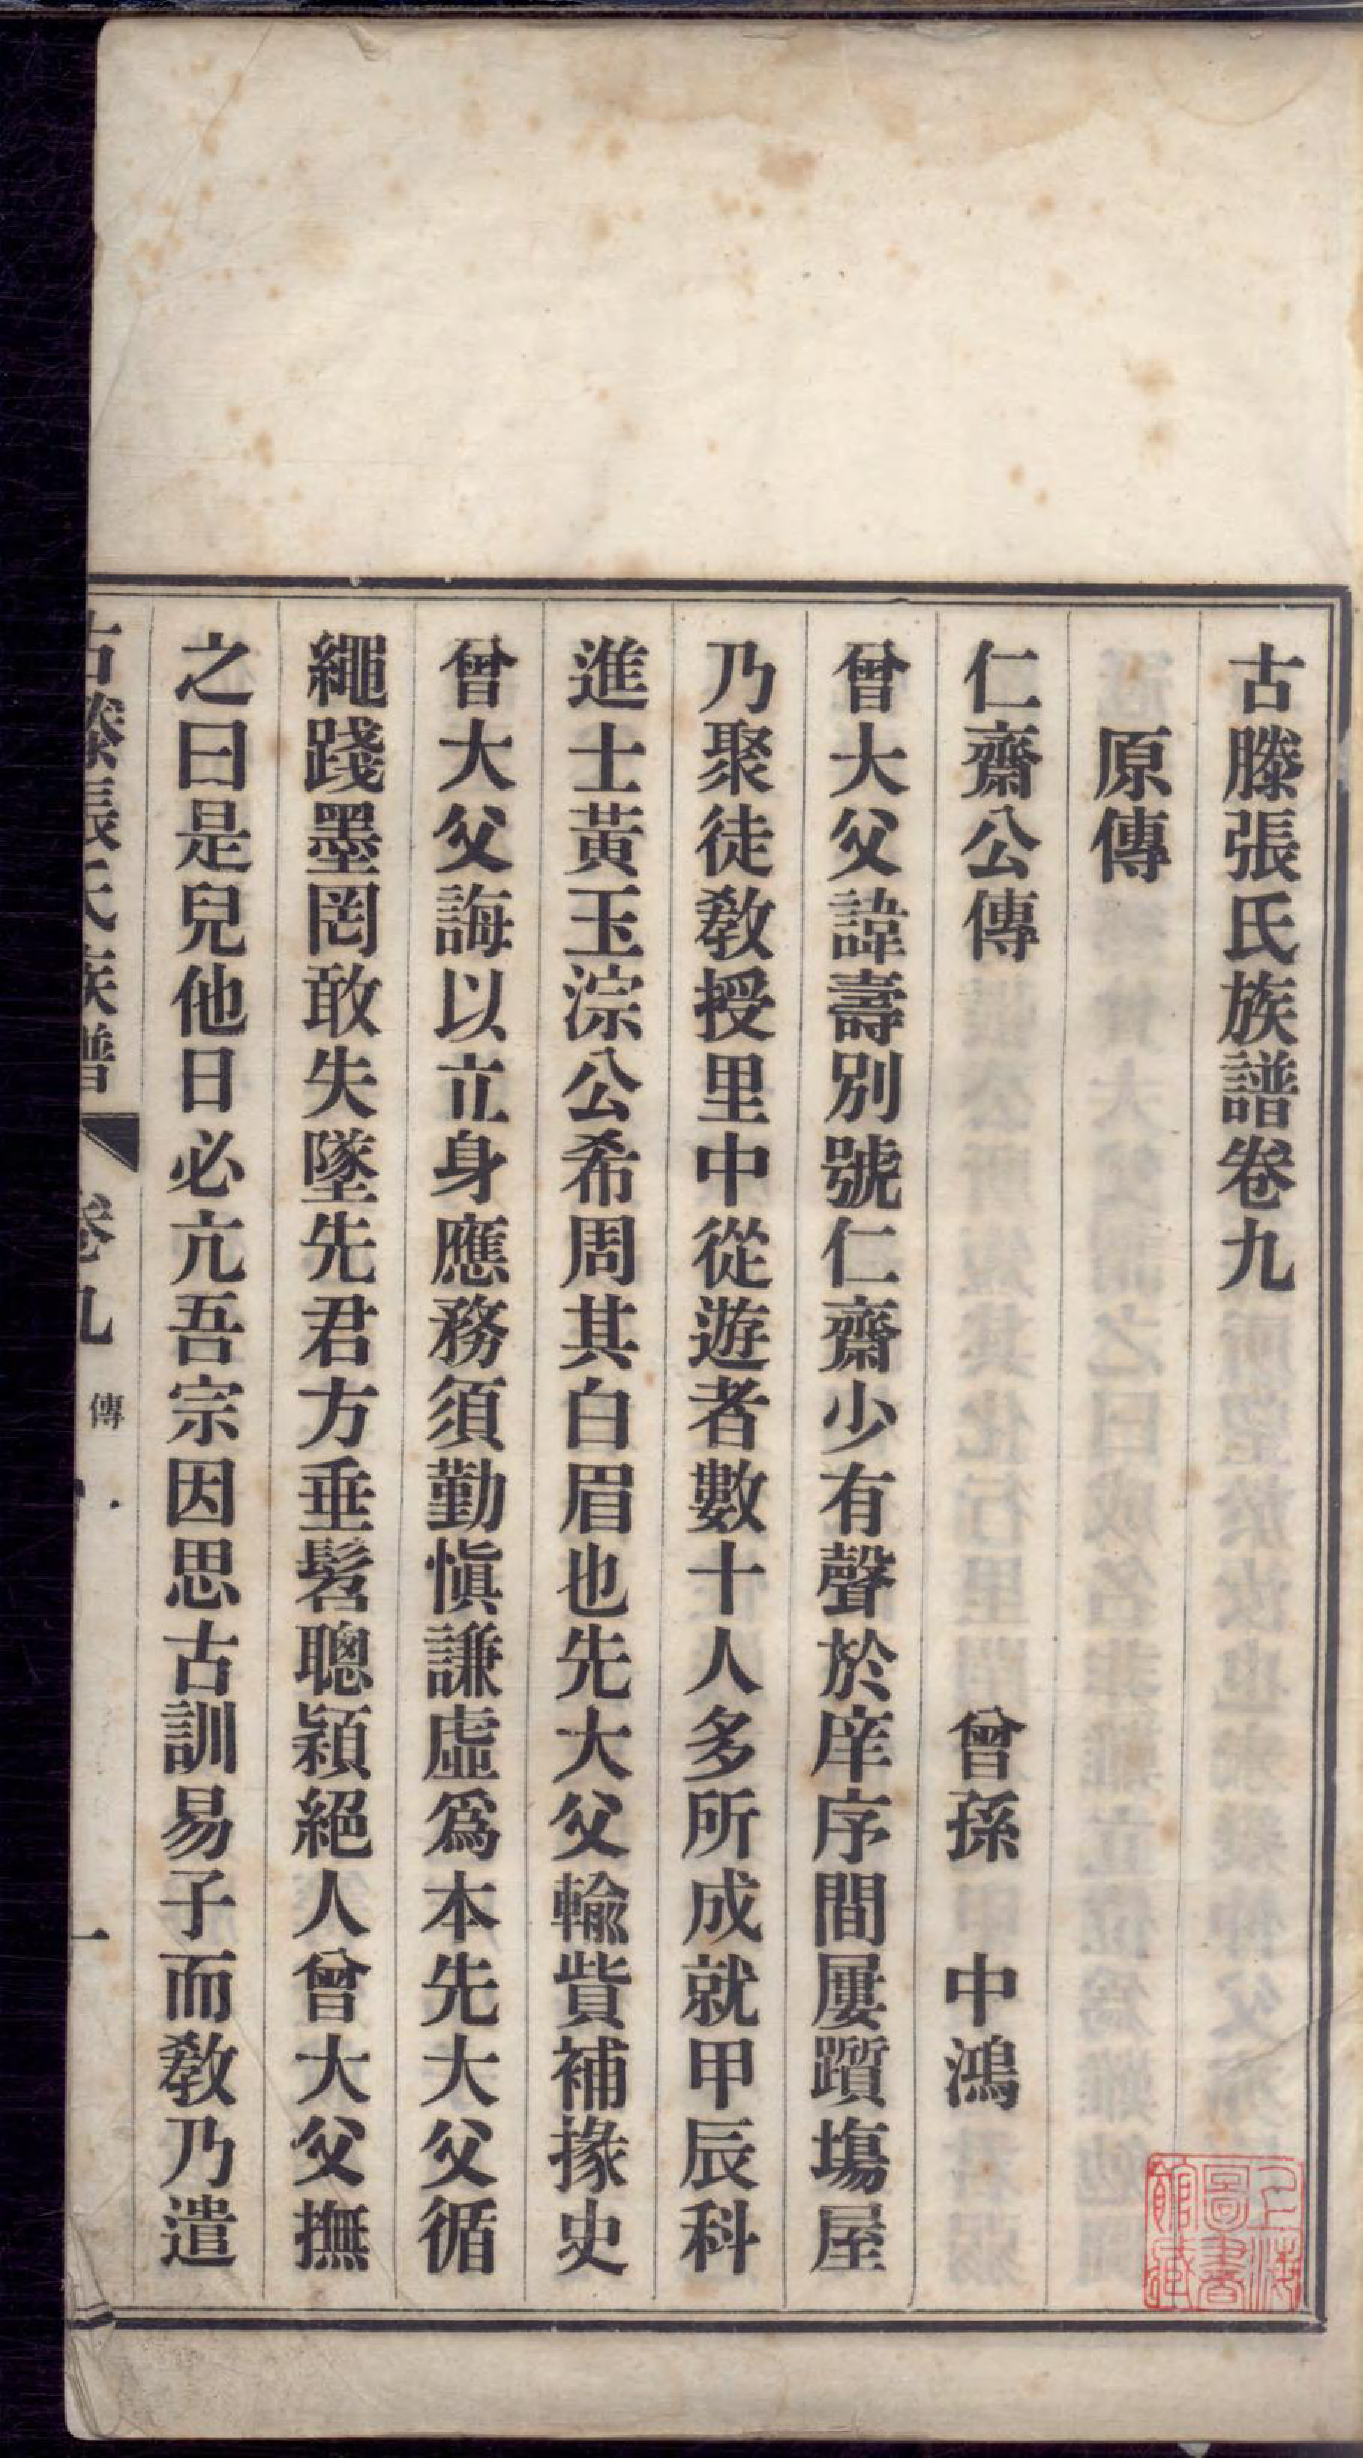 古滕張氏族譜卷九
原傳
仁齋公傳　曾孫　中鴻
曾大父諱壽別號仁齋少有聲於庠序間屢躓塲屋
乃聚徒敎授里中從遊者數十人多所成就甲辰科
進士黃玉淙公希周其白眉也先大父輸貲補掾史
曾大父誨以立身應務須勤愼謙虛爲本先大父循
繩踐墨罔敢失墜先君方垂髫聰穎絕人曾大父撫
之曰是兒他日必亢吾宗因思古訓易子而敎乃遣
古滕張氏族譜　卷九　傳　一
上海圖書館藏